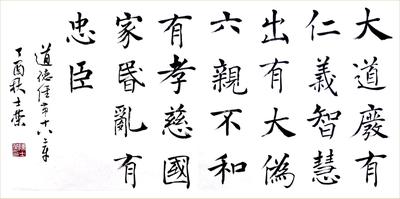 大道廢有
仁義智慧
出有大偽
六親不和
有孝慈國
家昬亂有
忠臣
道德經第十八章
丁酉秋士